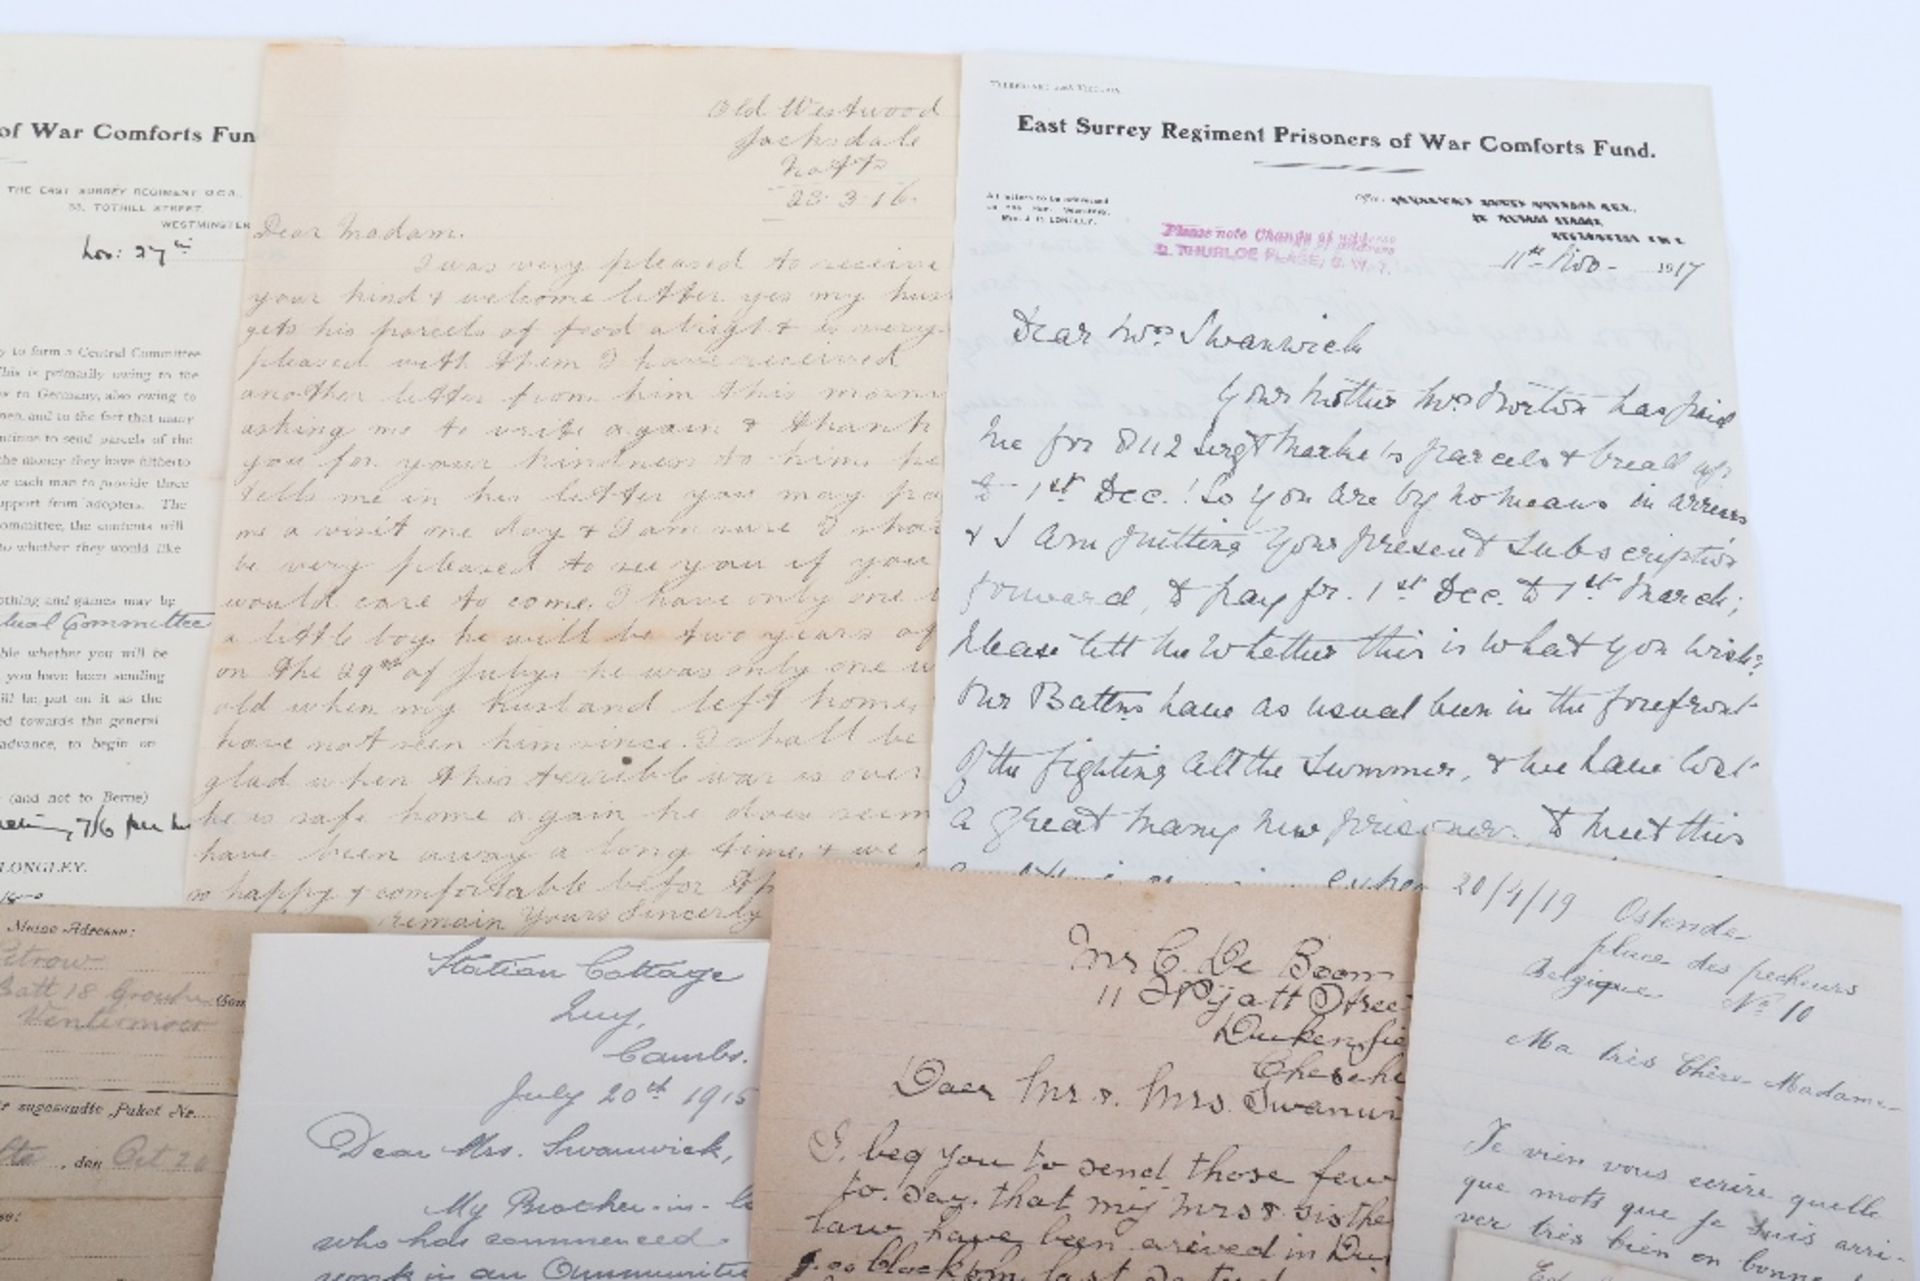 of War Comforts Fun
THE EAST SURREY REGIMENT O.C.A.,
TOTHILL STREET,
WESTMINSTER
Nov: 27th
y to form a Central Committee
This is primarily owing to the
to Germany, also owing to
men, and to the fact that many
continue to send parcels of the
the money they have hitherto
each man to provide three
support from adopters. The
ommittee, the contents will
to whether they would like
othing and games may be
tual Committee
ble whether you will be
you have been sending
ill be put on it as the
ed towards the general
advance, to begin on
(and not to Berne)
7/6 per
LONGLEY.
Old Westwood
Jacksdale
Notts
23.3.16.
Dear Madam.
I was very pleased to receive
your kind & welcome letter yes my hus
gets his parcels of food alright & is very
pleased with them I have received
another letter from him this morni
asking me to write again & thank
you for your kindness to him, he
tells me in his letter you may pa
me a visit one day & I am sure I shal
be very pleased to see you if you
would care to come. I have only one
a little boy he will be two years of
on the 29th of July, he was only one
old when my husband left home,
have not seen him since. I shall be
glad when this terrible war is over
he is safe home again he does seem
have been away a long time, & we
so happy & comfortable befor
remain Yours Sincerly
East Surrey Regiment Prisoners of War Comforts Fund.
All letters to be addressed
to the Hon. Secretary,
LONGLEY.
Please note Change of address
THURLOE PLACE, S.W.7.
11th Nov 1917
Dear Mrs Swanwick
Your Mother Mrs Norton has paid
me for 8112 Sergt Marke's parcels & bread up
to 1st Dec.! So you are by no means in arrears
& I am putting your present subscription
forward, to pay fr. 1st Dec. to 1st March;
please tell me whether this is what you wish?
Our Battns have as usual been in the forefront
of the fighting all the summer, & we have lost
a great many new prisoners. To meet this
Meine Adresse:
Batt 18
zugesandte Paket Nr.
, den Oct 20
Station Cottage
Quy,
Cambs.
July 20th 1915
Dear Mrs. Swanwick,
My Brother-in-la
who has commenced
work in an Ammunition
Mr C. De Boom
11 Pyatt Stree
Dukenfie
Cheschi
Daer Mr & Mrs. Swanwi
I. beg you to send those few
to. say. that my Mrs & sisthe
law have been arived in Du
20/4/19 Ostende
place des pecheurs
Belgique No 10
Ma très Chère Madame
Je vien vous ecrire quelle
que mots que je suis arri-
ver très bien en bonne